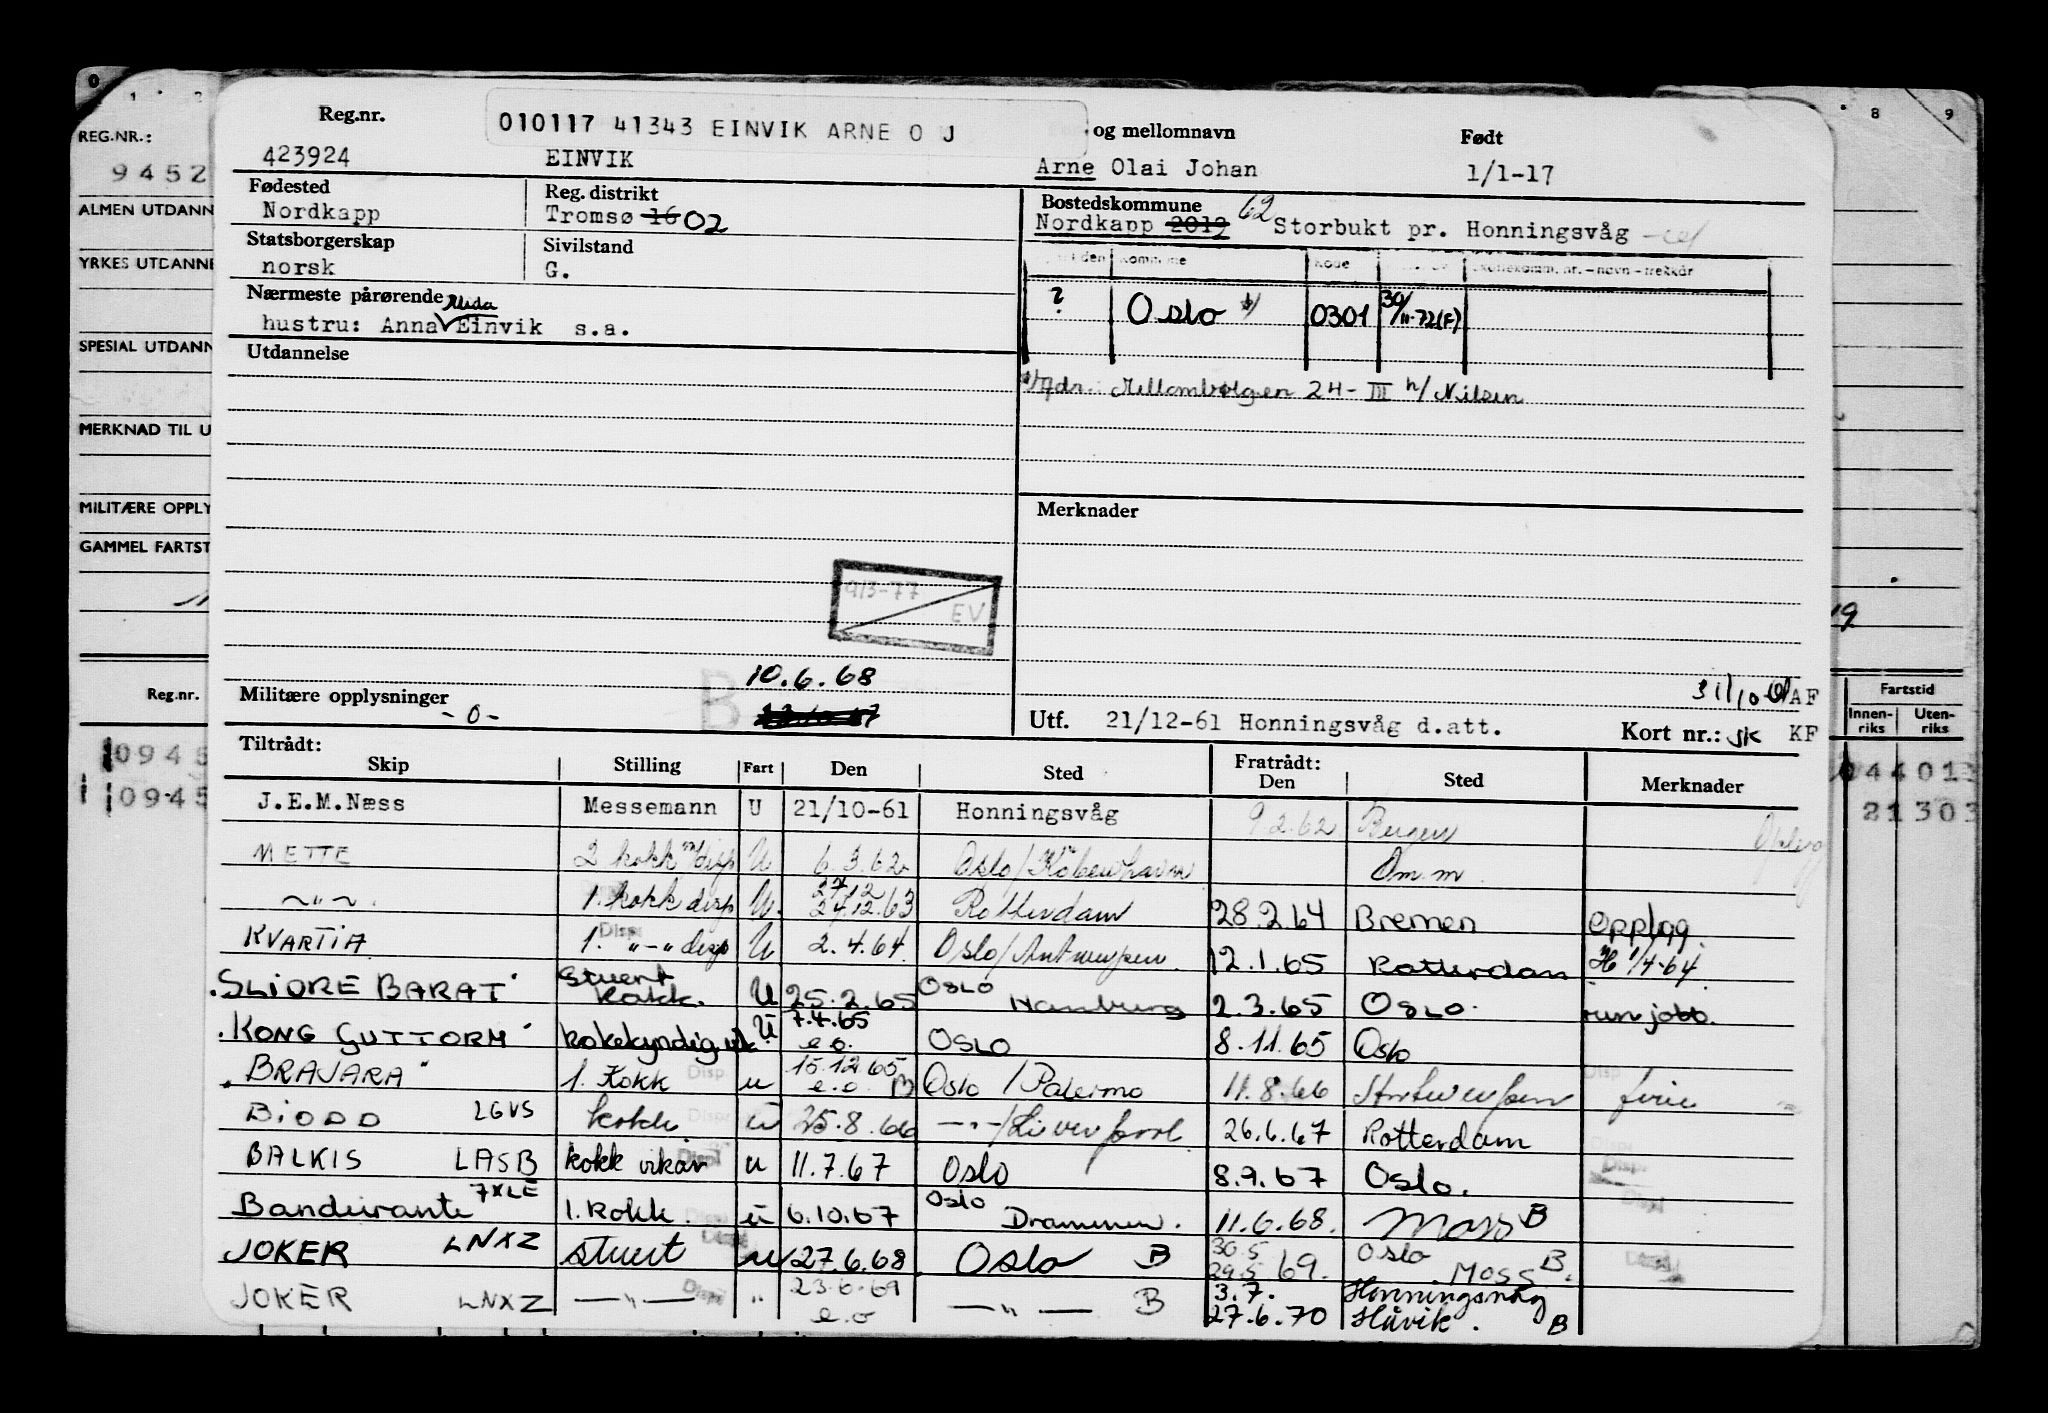 0 1 2 8 9
REG.NR.:
9452
ALMEN UTDANN
YRKES UTDANNE
SPESIAL UTDANN
MERKNAD TIL U
MILITÆRE OPPLY
GAMMEL FARTST
Reg.nr.
0945
0945
Reg.nr. 010117 41343 EINVIK ARNE O J og mellomnavn Født
423924 EINVIK Arne Olai Johan 1/1-17
Fødested Reg. distrikt Bostedskommune
Nordkapp Tromsø 16 02 Nordkapp 2019 62 Storbukt pr. Honningsvåg
Statsborgerskap Sivilstand
norsk G.
Nærmeste pårørende
hustru: Anna Einvik s.a.
? Oslo 0301 30/11-72(F)
Utdannelse
Mellombølgen 24 - III h/ Nilsen
Merknader
913-77
EV
10.6.68
Militære opplysninger
- 0 -
B
Utf. 21/12-61 Honningsvåg d.att. 31/10 AF
Kort nr.: KF
Fartstid
Innen-riks Uten-riks
44013
21303
Tiltrådt: Fratrådt:
Skip Stilling Fart Den Sted Den Sted Merknader
J.E.M.Næss Messemann U 21/10-61 Honningsvåg 9.2.62 Bergen
METTE 2 kokk disp U 6.3.62 Oslo/København Om.m.
-"- 1. kokk disp U 27/12 24.12.63 Rotterdam 28.2.64 Bremen Opplagg
KVARTIA 1. "-" disp U 2.4.64 Oslo/Antwerpen 12.1.65 Rotterdam 1/4-64
"SLIDRE BARAT" Stuert kokk. U 25.2.65 Oslo Hamburg 2.3.65 Oslo run jobb.
"KONG GUTTORM" kokekyndig U 7.4.65 e.o. Oslo 8.11.65 Oslo
"BRAJARA" 1. Kokk u 15.12.65 e.o. B Oslo / Palermo 11.8.66 Antwerpen ferie
BIODD LGVS kokk u 25.8.66 -"-/Liverpool 26.6.67 Rotterdam
BALKIS LASB kokk vikar u 11.7.67 Oslo 8.9.67 Oslo.
Bandeirante 7XLE 1. kokk. u 6.10.67 Oslo Drammen. 11.6.68. Moss B
JOKER LNXZ stuert u 27.6.68 Oslo B 30.5 29.5 69. Oslo Moss B.
JOKER LNXZ -"- " 23.6.69 e.o -"- B 3.7. 27.6.70 Honningsvåg Håvik. B